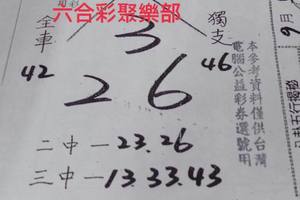 六合彩聚樂部
全車
獨支
3
42
2 6
46
本參考資料僅供台灣
電腦公益彩券選號用
二中—23.26
三中—13.33.43
9月